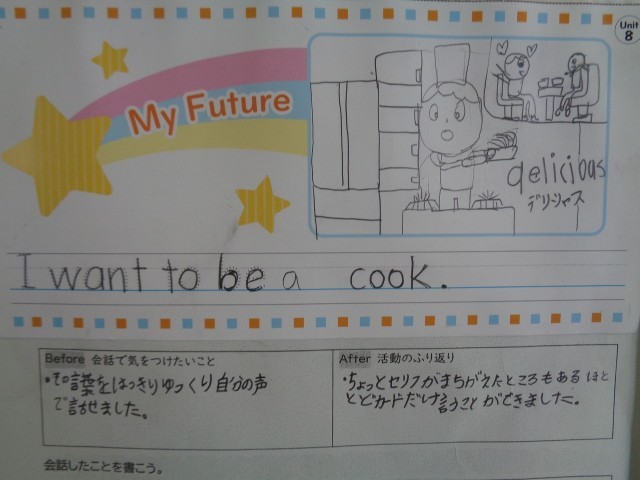 Unit
8
My Future
delicious
デリシャス
I want to be a cook.
Before 会話で気をつけたいこと
・言葉をはっきりゆっくり自分の声
で話せました。
After 活動のふり返り
・ちょっとセリフがまちがえたところもあるほと
とどカードだけ言うことができました。
会話したことを書こう。